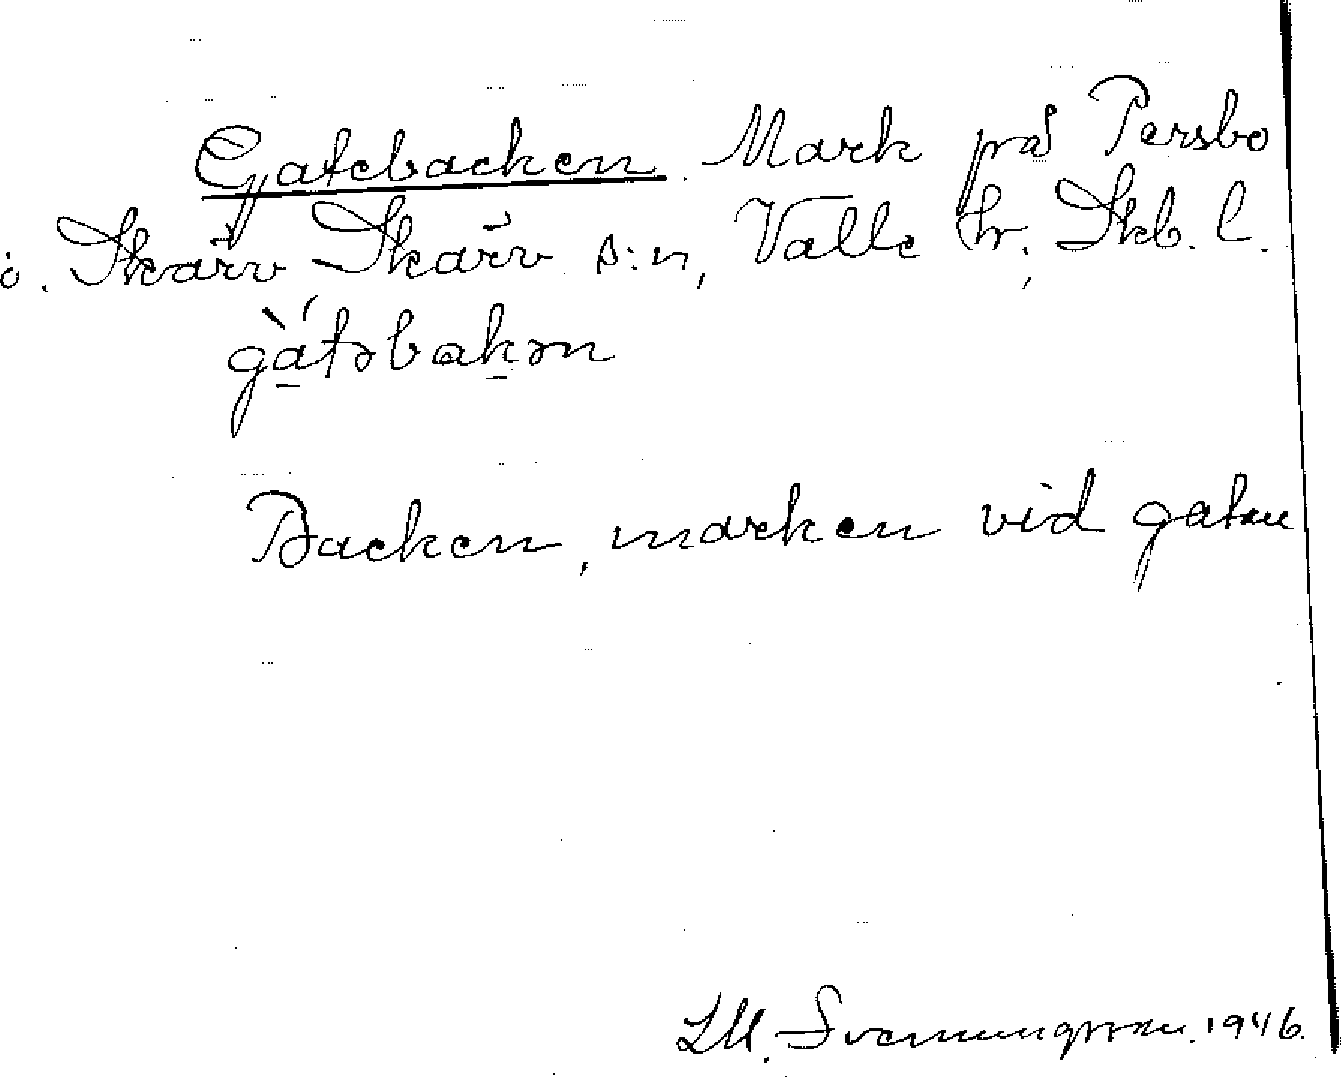 Gatebacken. Mark på Persbo
i. Skärv Skärv s:n, Valle hr; Skb. l.
gàtəbakən
Backen, marken vid gatan
1946